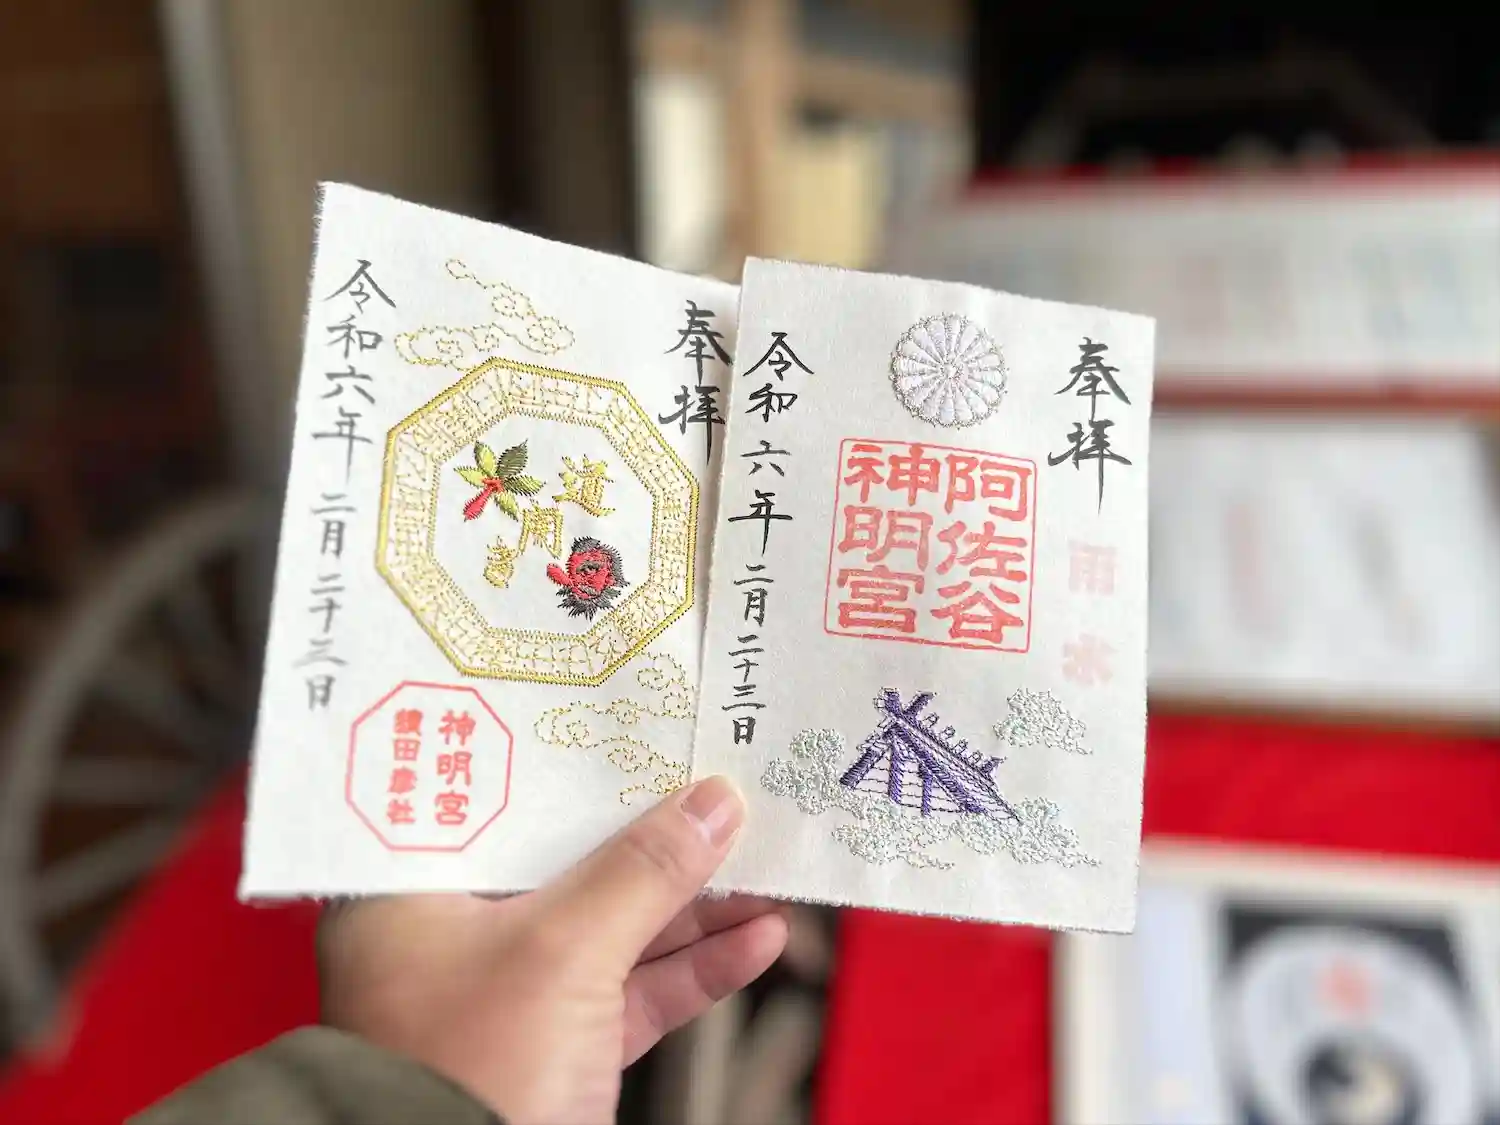 奉拝
道開き
令和六年二月二十三日
神明宮
猿田彦社
奉拝
雨水
阿佐谷
神明宮
令和六年二月二十三日